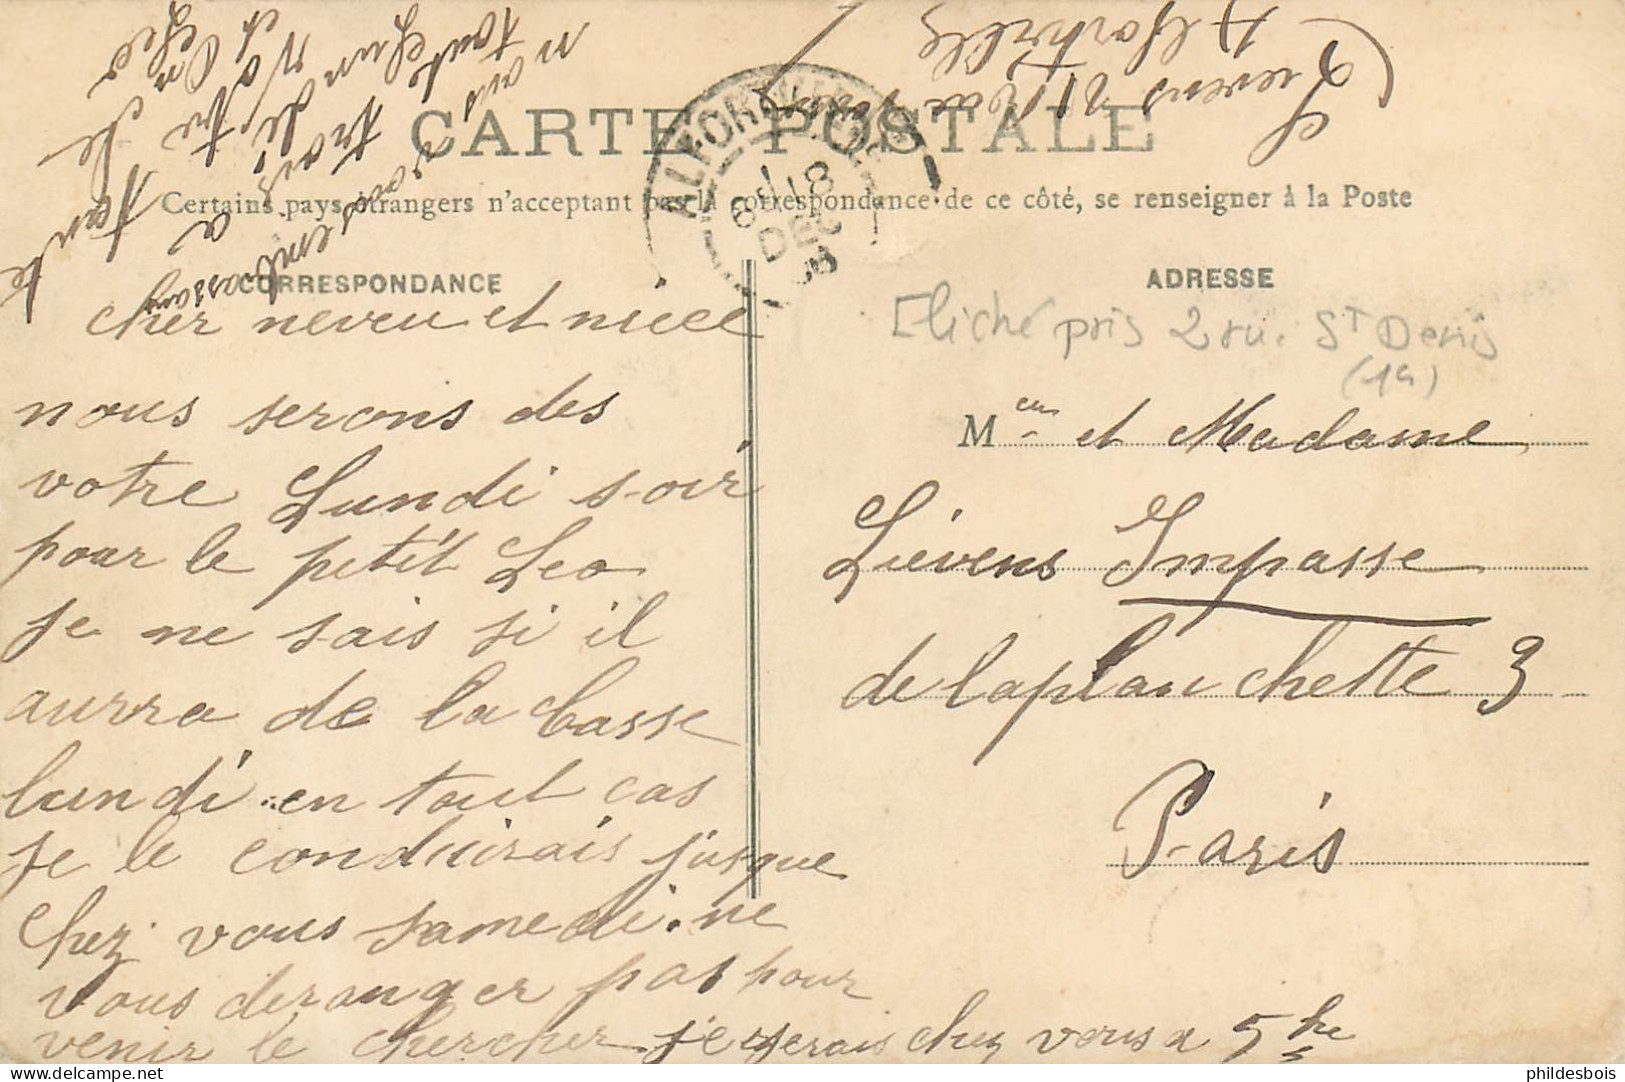 CARTE POSTALE
Certains pays étrangers n'acceptant pas la correspondance de ce côté, se renseigner à la Poste
CORRESPONDANCE
cher neveu et niece
nous serons des
votre Lundi soir
pour le petit Leo
je ne sais si il
aurra de la Casse
lundi en tout cas
je le conduirais jusque
chez vous samedi. ne
vous deranger pas pour
venir le chercher je serais chez vous a 5 hre
ADRESSE
Cliché pris 2 ru. St Denis
(19)
M et Madame
Lievens Impasse
de laplanchette 3
Paris
ALFORTVILLE
DEC
nous vous embrassons
tout
trois a
Lievens
Alfortville
phildesbois